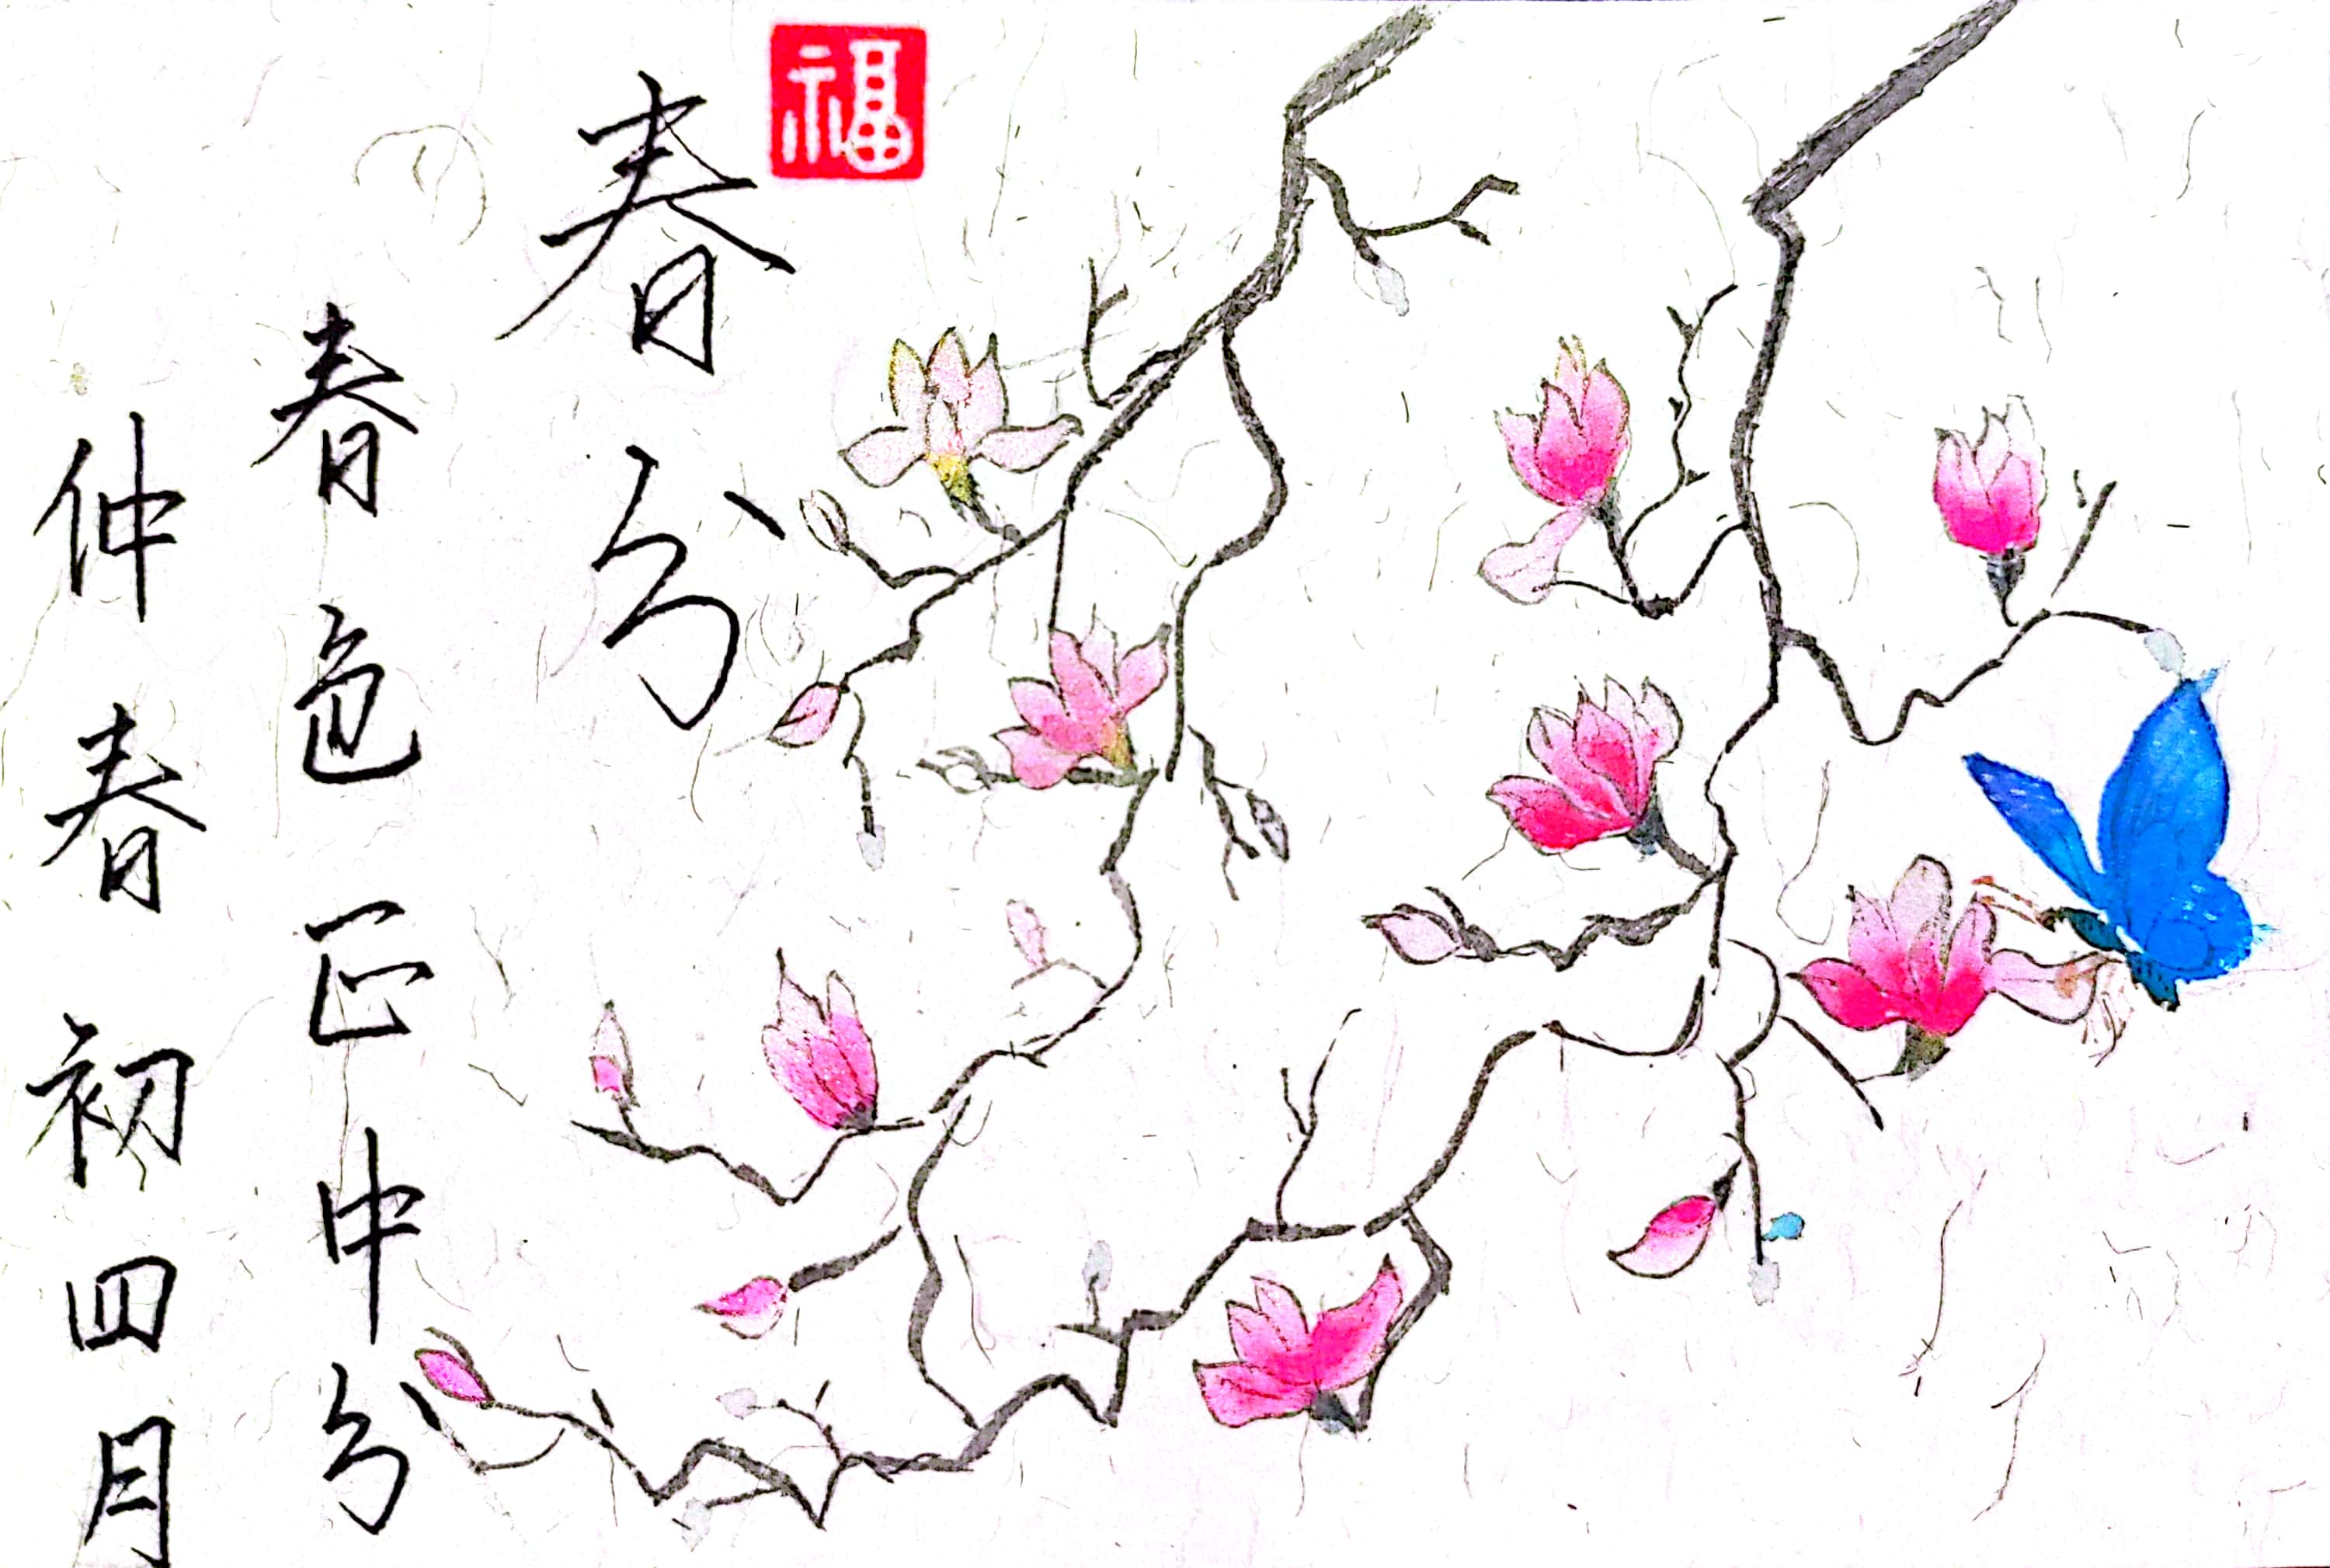 福
春分
春色正中分
仲春初四月